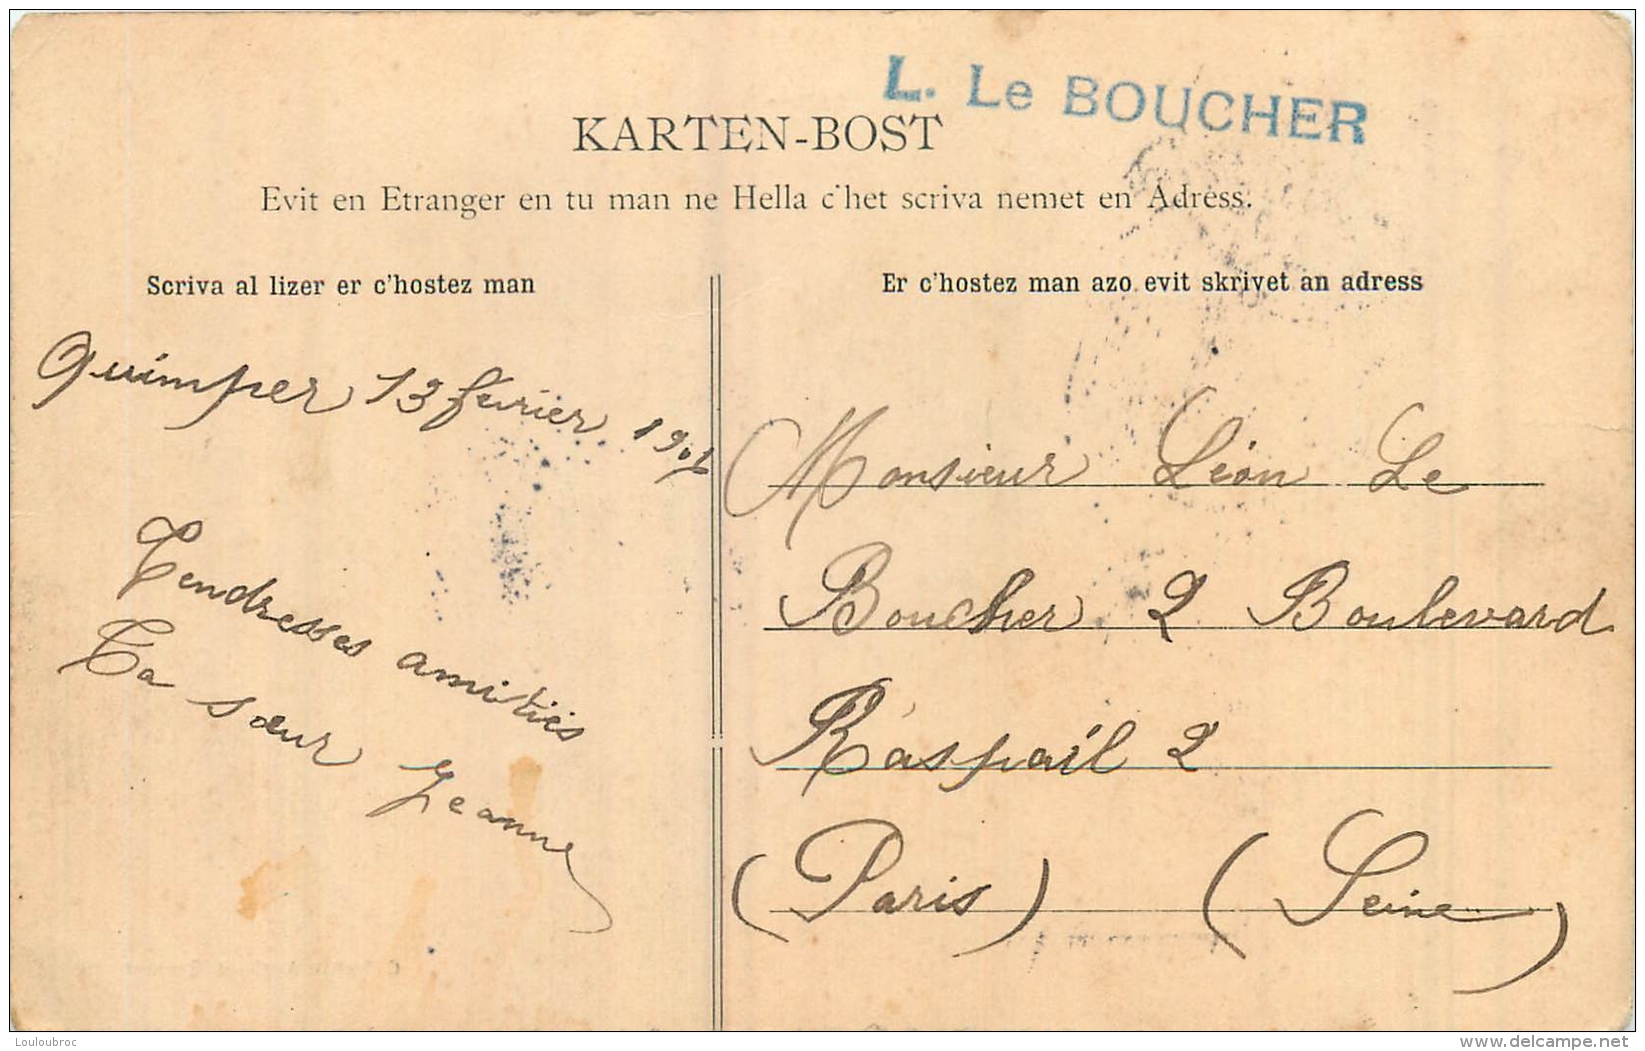 L. Le BOUCHER
KARTEN-BOST
Evit en Etranger en tu man ne Hella c'het scriva nemet en Adress.
Scriva al lizer er c'hostez man
Er c'hostez man azo evit skrivet an adress
Quimper 13 février
Tendresses amitiés
Ta sœur Jeanne
Monsieur Léon Le
Boucher 2 Boulevard
Raspail 2
(Paris) (Seine)
Louloubroc
www.delcampe.net